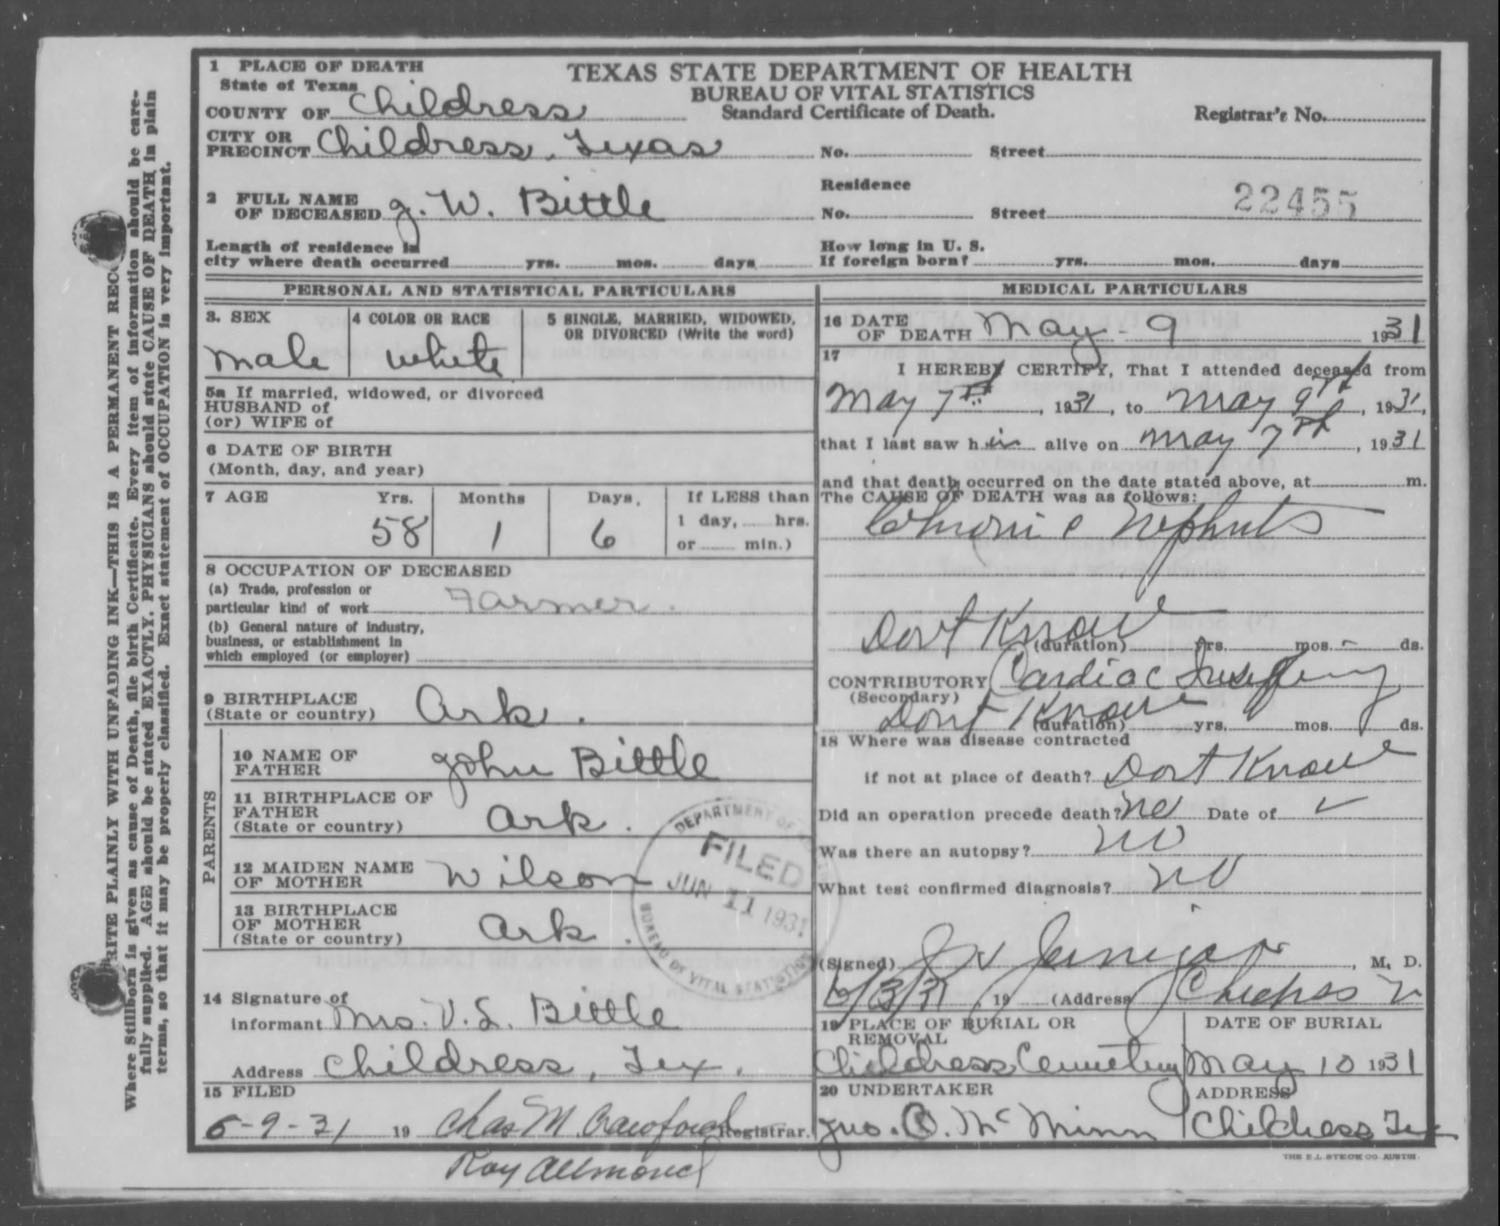 TEXAS STATE DEPARTMENT OF HEALTH
BUREAU OF VITAL STATISTICS
Standard Certificate of Death.
Registrar's No.
1 PLACE OF DEATH
State of Texas
COUNTY OF Childress
CITY OR PRECINCT Childress, Texas
No. Street
2 FULL NAME OF DECEASED G. W. Bittle
Residence
No. Street
22455
Length of residence in
city where death occurred yrs. mos. days
How long in U. S.
If foreign born? yrs. mos. days
PERSONAL AND STATISTICAL PARTICULARS
3. SEX
male
4 COLOR OR RACE
white
5 SINGLE, MARRIED, WIDOWED,
OR DIVORCED (Write the word)
5a If married, widowed, or divorced
HUSBAND of
(or) WIFE of
6 DATE OF BIRTH
(Month, day, and year)
7 AGE Yrs. Months Days, If LESS than
58 1 6 1 day, hrs.
or min.)
8 OCCUPATION OF DECEASED
(a) Trade, profession or
particular kind of work Farmer.
(b) General nature of industry,
business, or establishment in
which employed (or employer)
9 BIRTHPLACE
(State or country) Ark.
PARENTS
10 NAME OF FATHER John Bittle
11 BIRTHPLACE OF FATHER
(State or country) Ark.
12 MAIDEN NAME OF MOTHER Wilson
13 BIRTHPLACE OF MOTHER
(State or country) Ark.
14 Signature of
Informant Mrs. V. L. Bittle
Address Childress, Tex.
15 FILED
5-9-31 19 Chas M Crawford Registrar.
Roy Allmond
DEPARTMENT OF
FILED
JUN 11 1931
BUREAU OF VITAL STATISTICS
MEDICAL PARTICULARS
16 DATE OF DEATH May - 9 1931
17
I HEREBY CERTIFY, That I attended deceased from
May 7th, 1931, to May 9th, 1931,
that I last saw him alive on May 7th, 1931
and that death occurred on the date stated above, at m.
The CAUSE OF DEATH was as follows:
Chronic Nephritis
Dont Know
(duration) yrs. mos. - ds.
CONTRIBUTORY Cardiac
(Secondary)
Dont Know
(duration) yrs. mos. ds.
18 Where was disease contracted
if not at place of death? Dont Know
Did an operation precede death? no Date of ✓
Was there an autopsy? no
What test confirmed diagnosis? no
(Signed) Jernigan, M. D.
6/3/31, 19 (Address Childress
19 PLACE OF BURIAL OR REMOVAL
Childress Cemetery
DATE OF BURIAL
May 10 1931
20 UNDERTAKER
Jno. O. McMinn
ADDRESS
Childress Tex
THE E.L. STECK CO. AUSTIN.
RITE PLAINLY WITH UNFADING INK—THIS IS A PERMANENT RECO
Where Stillborn is given as cause of Death, file birth Certificate. Every item of information should be care-
fully supplied. AGE should be stated EXACTLY. PHYSICIANS should state CAUSE OF DEATH in plain
terms, so that it may be properly classified. Exact statement of OCCUPATION is very important.